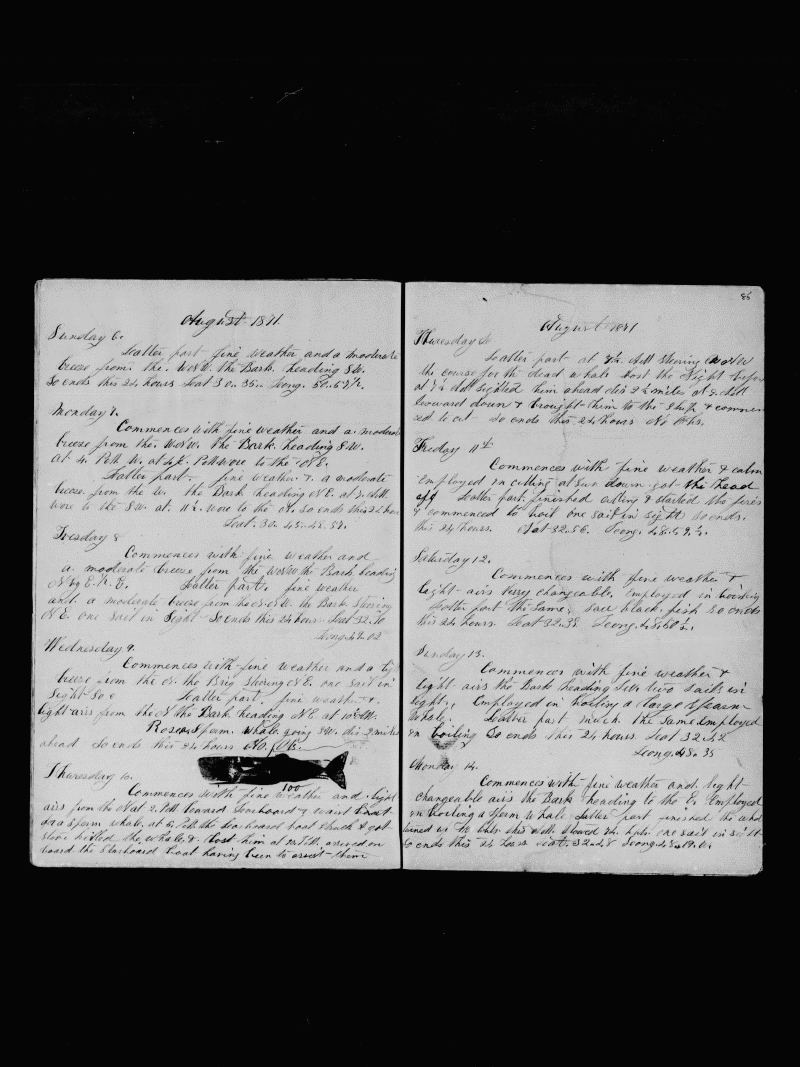 August 1871.
Sunday 6.
Latter part fine weather and a moderate
breeze from the. WSW. the Bark heading SW.
So ends this 24 hours Lat 30..35.. Long. 50..57
Monday 7.
Commences with fine weather and a. moderate
breeze from the. WSW. the Bark. heading SW.
at. 4. P.M. W. at P.M. wore to the NE.
Latter part. fine weather. & a moderate
breeze from the W. the Bark heading NE. at A.M.
wore to the SW at. wore to the N. So ends this 24 hours
Lat. 30..45..
Tuesday 8
Commences with fine weather and
a. moderate breeze from the WSW the Bark heading
N by E. Latter part. fine weather
and a moderate breeze from the the Bark Steering
NE. one sail in Sight So ends this 24 hours Lat 32..10
Long. 49..02
Wednesday 9.
Commences with fine weather and a
breeze from the the Brig steering NE. one sail in
Sight Latter part. fine weather. &.
light airs from the N the Bark heading NE at
Sperm. whale going SW. dis. 2 miles
ahead So ends this 24 hours
100
Thursday 10.
Commences with fine weather and. light
airs from the N at 2. P.M. lowerd Starboard & waist boat
for a sperm whale, at P.M. the Starboard boat struck & got
stove killed the whale & lost him at P.M. arrived on
board the Starboard boat having been to them
85
August 1871
Thursday 10
Latter part at A.M. Steering
the course for the dead whale lost the Night before
at A.M. Sighted him ahead dis 2½ miles at A.M.
lowerd down & brought him to the Ship & commen
ced to cut. So ends this 24 hours No Obs.
Friday 11th
Commences with fine weather & calm
Employed in cutting at Sun down got the head
off Latter part. finished cutting & started the fires
& commenced to boil one sail in sight so ends.
this 24 hours. Lat 32..56. Long. 48..59
Saturday 12.
Commences with fine weather &
light airs very changeable. Employed in boiling
Latter part the Same. saw black fish so ends
this 24 hours. Lat 32..38 Long. 48..50½.
Sunday 13.
Commences with fine weather &
light airs the Bark heading two Sails in
sight., Employed in boiling a large Sperm
Whale. Latter part much the same Employed
in boiling So ends this 24 hours. Lat 32..42
Long. 48..35
Monday 14.
Commences with fine weather and. light
changeable airs the Bark heading to the E. Employed
in boiling a Sperm Whale Latter part finished the whale
turned up bbls this A.M. Stowed one sail in sight
So ends this 24 hours Lat. 32..48 Long